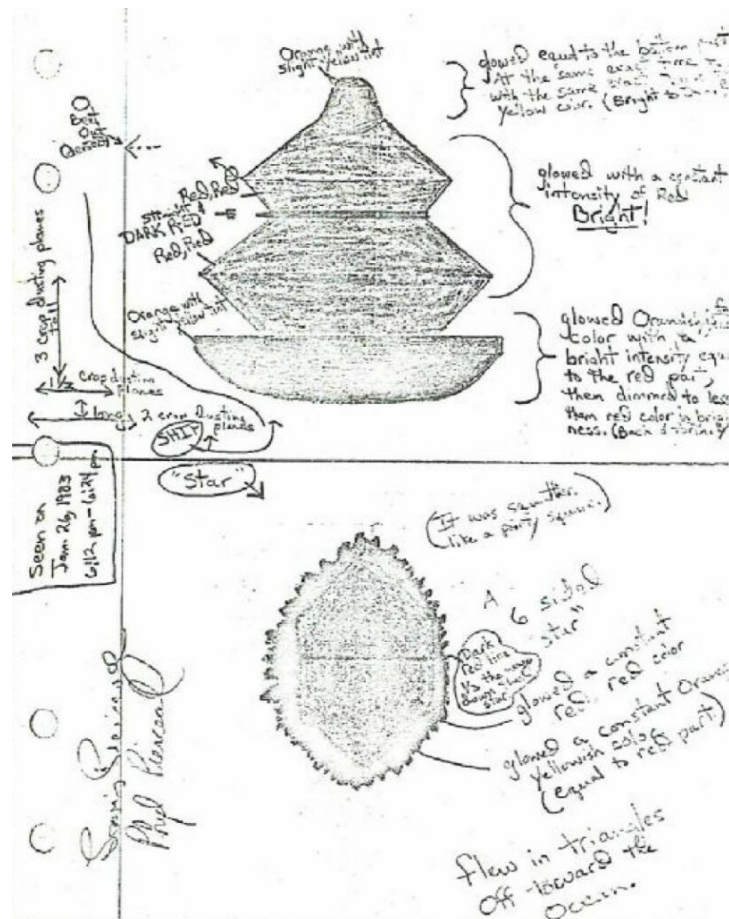 Orange with
slight yellow tint
glowed equal to the bottom part
At the same exact time
with the same
yellow color. (Bright to
Bent
Out
3 crop dusting planes
tall
Red, Red
straight
DARK RED
Red, Red
glowed with a constant
intensity of Red
Bright!
Orange with
slight yellow tint
glowed Oranish
color with a
bright intensity equal
to the red part,
then dimmed to
than red color in bright
ness. (Back
1/2 crop dusting
planes
long 2 crop dusting
planes
SHIP
"Star"
Seen on
Jan. 26, 1983
6:12 pm - 6:24 pm
(It was smaller.
like a party square.)
A 6 sided
star"
Dark
red line
1/2 the way
down
star
glowed a constant
red, red color
glowed a constant Orangy
yellowish color
(equal to red part)
Flew in triangles
off toward the
Ocean.